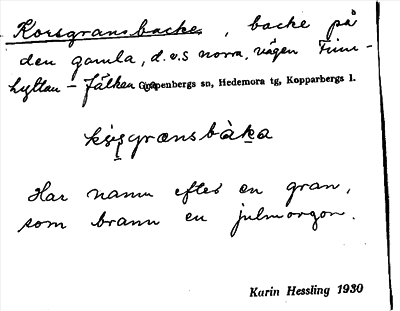 Korsgransbacke, backe på
den gamla, d.v.s norra, vägen Finn-
hyttan – Fälken Garpenbergs sn, Hedemora tg, Kopparbergs l.
Har namn efter en gran,
som brann en julmorgon.
Karin Hessling 1930